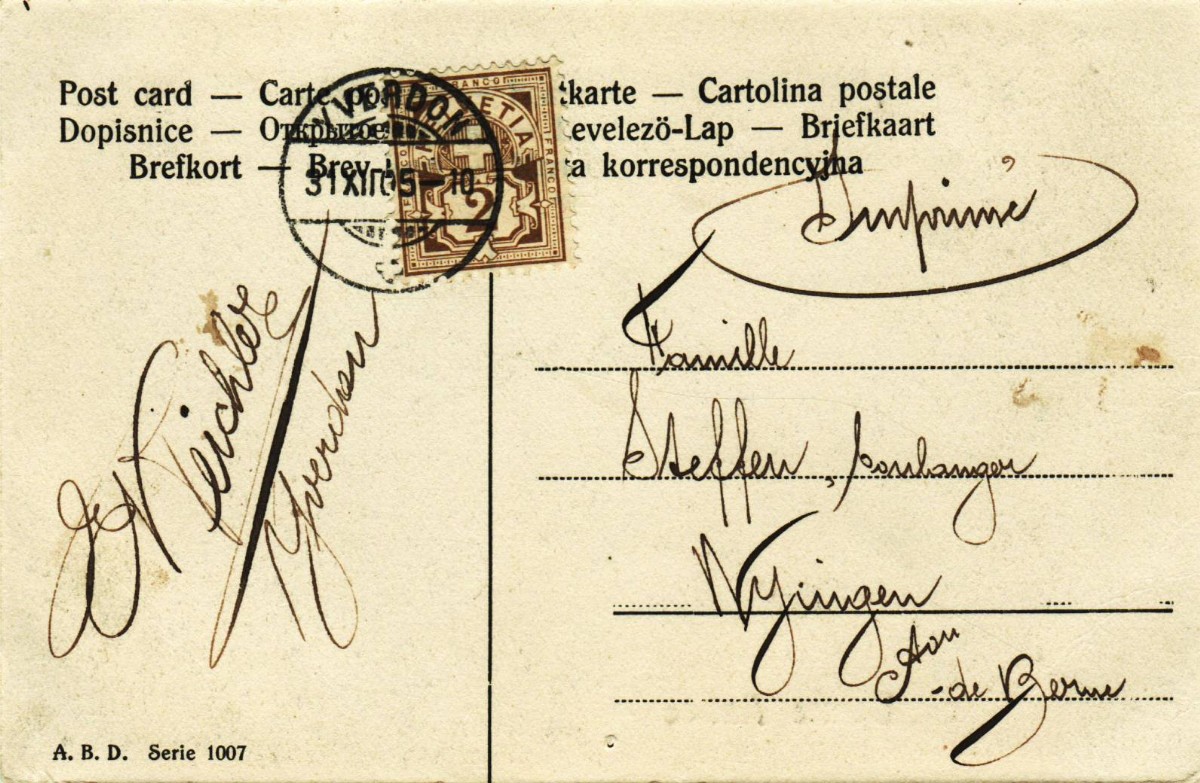 Post card — Carte po tkarte — Cartolina postale
Dopisnice — Открытое evelezö-Lap — Briefkaart
Brefkort — Brev ta korrespondencyjna
YVERDON
31 XII 05 — 10
FRANCO HELVETIA FRANCO
2
Imprimé
Famille
Steffen, boulanger
Wynigen
Cton
de Berne
Teichler
Yverdon
A. B. D. Serie 1007